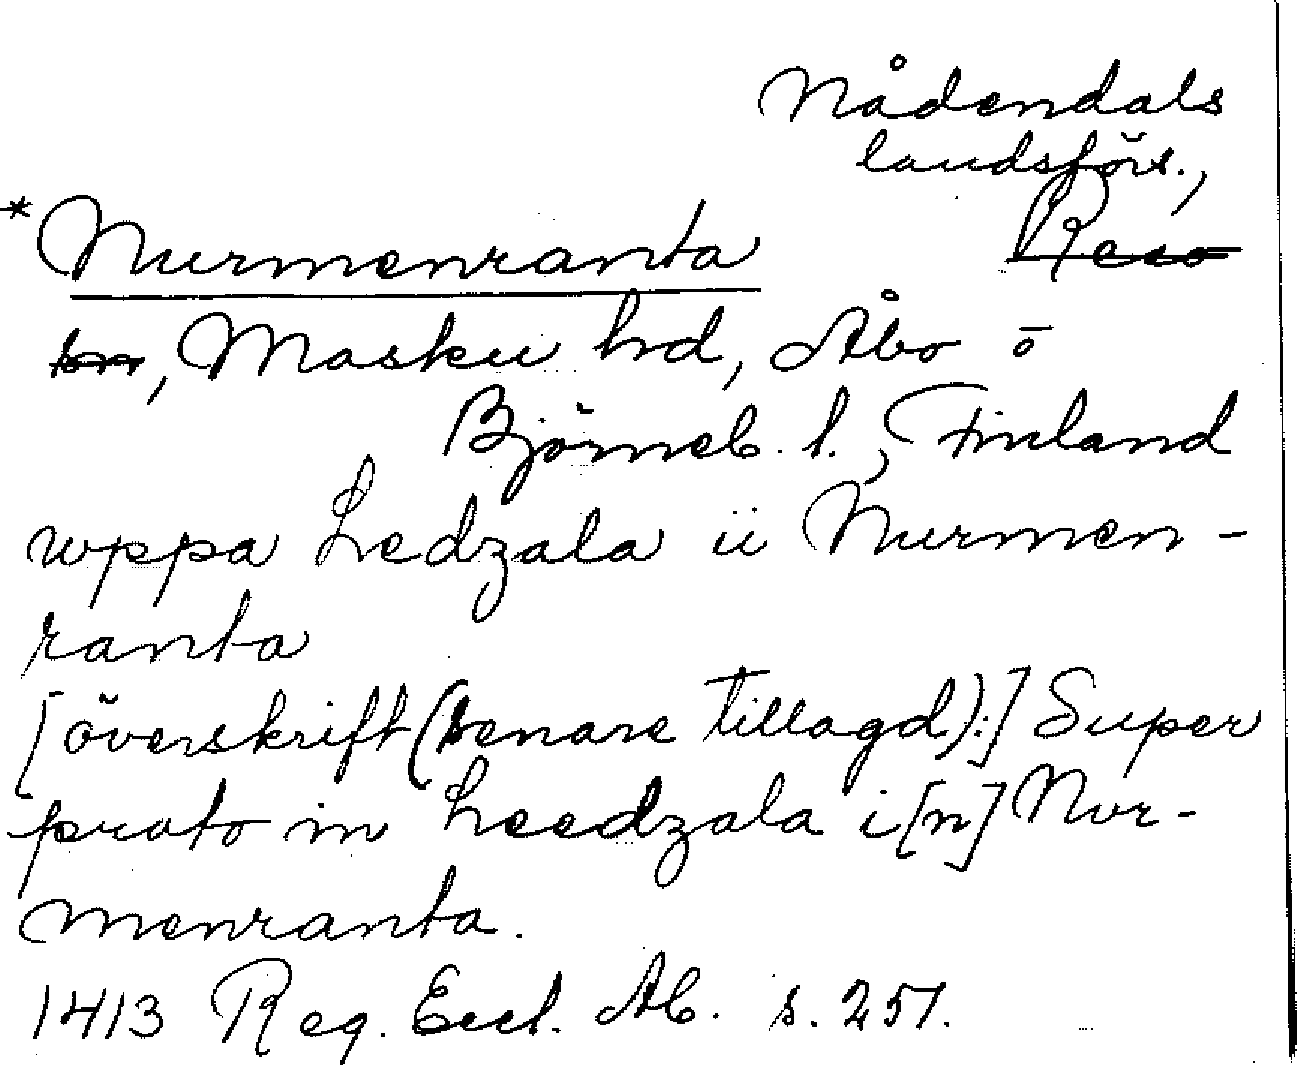 Nådendals
landsförs.,
*Nurmenranta Reso
bm, Masku hd, Åbo o
Björneb. l., Finland
wppa Ledzala ii Nurmen-
ranta
[överskrift (senare tillagd):] Super
prato in Leedzala i[n] Nvr-
menranta.
1413 Reg. Eccl. Ab. s. 251.